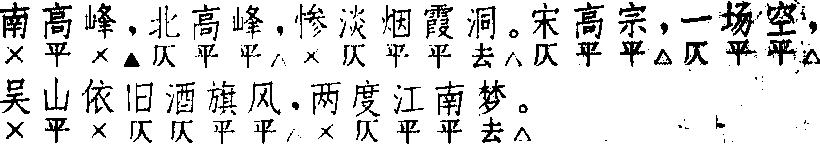 南高峰，北高峰，惨淡烟霞洞。宋高宗，一场空，
×平×▲仄平平△×仄平平去△仄平平△仄平平△
吴山依旧酒旗风，两度江南梦。
×平×仄仄平平△×仄平平去△